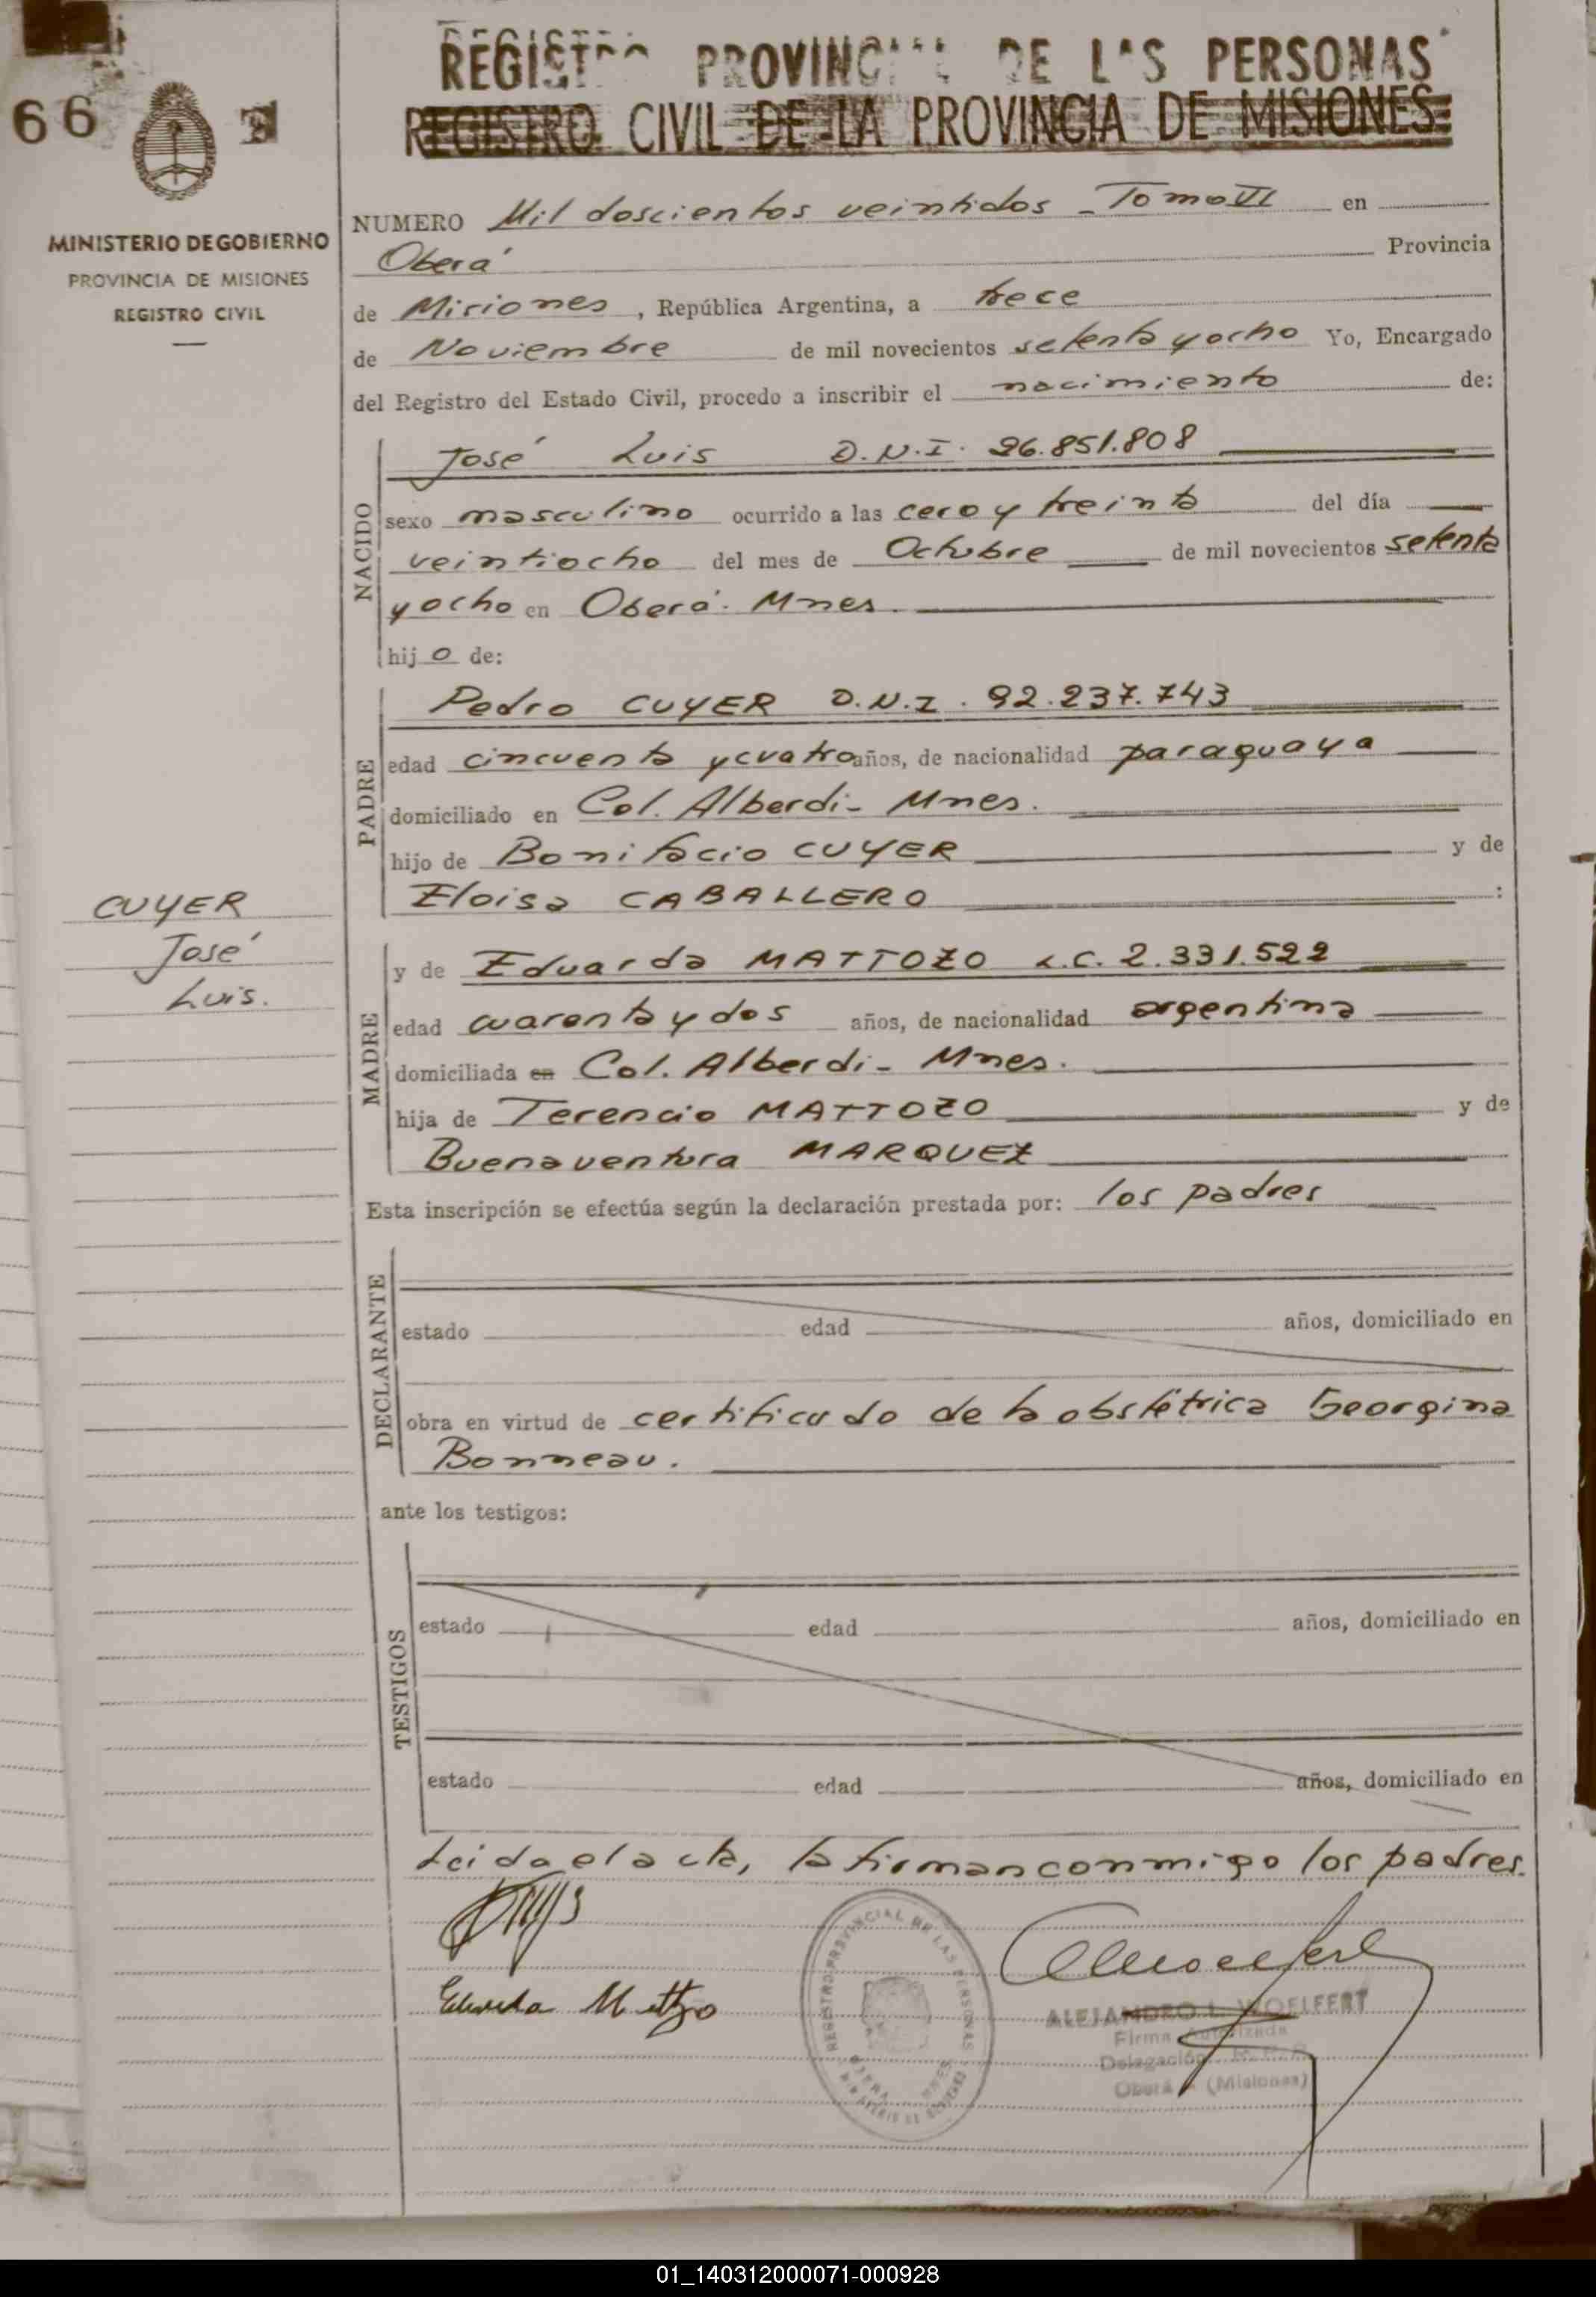 66
MINISTERIO DE GOBIERNO
PROVINCIA DE MISIONES
REGISTRO CIVIL
REGISTRO PROVINCIAL DE LAS PERSONAS
REGISTRO CIVIL DE LA PROVINCIA DE MISIONES
NUMERO Mil doscientos veintidos - Tomo VI en
Oberá Provincia
de Misiones, República Argentina, a trece
de Noviembre de mil novecientos setenta y ocho Yo, Encargado
del Registro del Estado Civil, procedo a inscribir el nacimiento de:
NACIDO
José Luis D.N.I. 26.851.808
sexo masculino ocurrido a las cero y treinta del día
veintiocho del mes de Octubre de mil novecientos setenta
y ocho en Oberá. Mnes.
hijo de:
PADRE
Pedro CUYER D.N.I. 92.237.743
edad cincuenta y cuatro años, de nacionalidad paraguaya
domiciliado en Col. Alberdi - Mnes.
hijo de Bonifacio CUYER y de
Eloisa CABALLERO :
CUYER
José
Luis.
MADRE
y de Eduarda MATTOZO L.C. 2.331.522
edad cuarenta y dos años, de nacionalidad argentina
domiciliada en Col. Alberdi - Mnes.
hija de Terencio MATTOZO y de
Buenaventura MARQUEZ
Esta inscripción se efectúa según la declaración prestada por: los padres
DECLARANTE
estado edad años, domiciliado en
obra en virtud de certificado de la obstétrica Georgina
Bonneau.
ante los testigos:
TESTIGOS
estado edad años, domiciliado en
estado edad años, domiciliado en
Leida el acta, la firman conmigo los padres
Eduarda Mattozo
REGISTRO PROVINCIAL DE LAS PERSONAS
ALEJANDRO L. WOELFERT
Firma Autorizada
Delegación
Oberá - (Misiones)
01_140312000071-000928